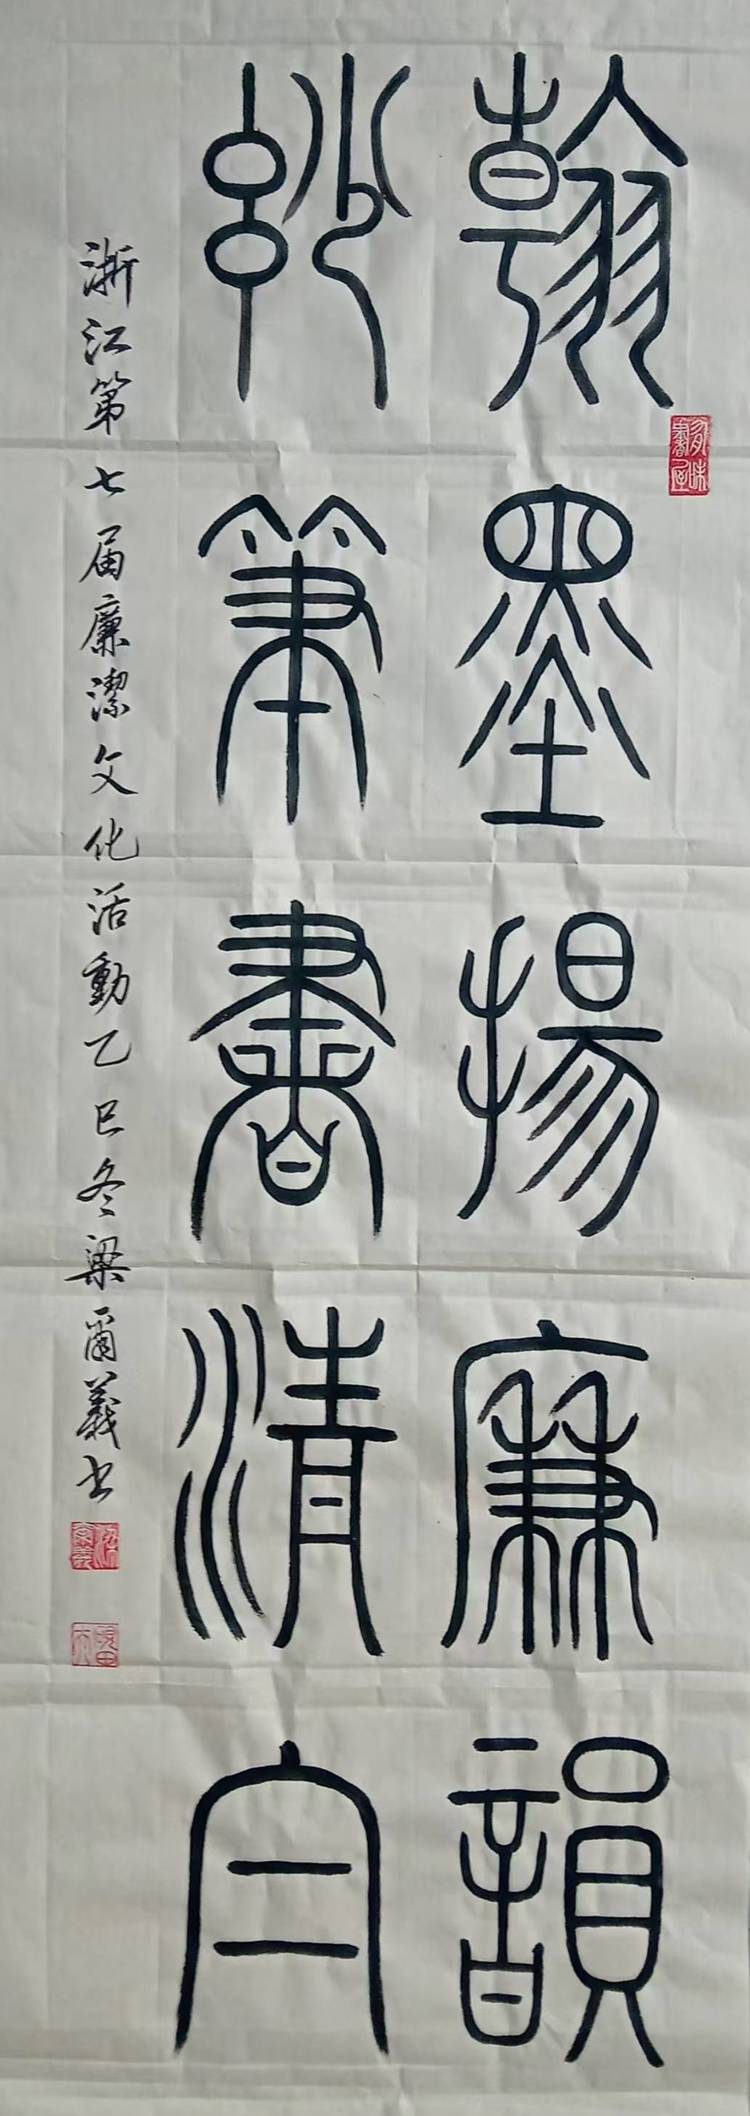 翰墨揚廉韻
妙筆書清
浙江第七届廉潔文化活動乙巳冬梁爾義书